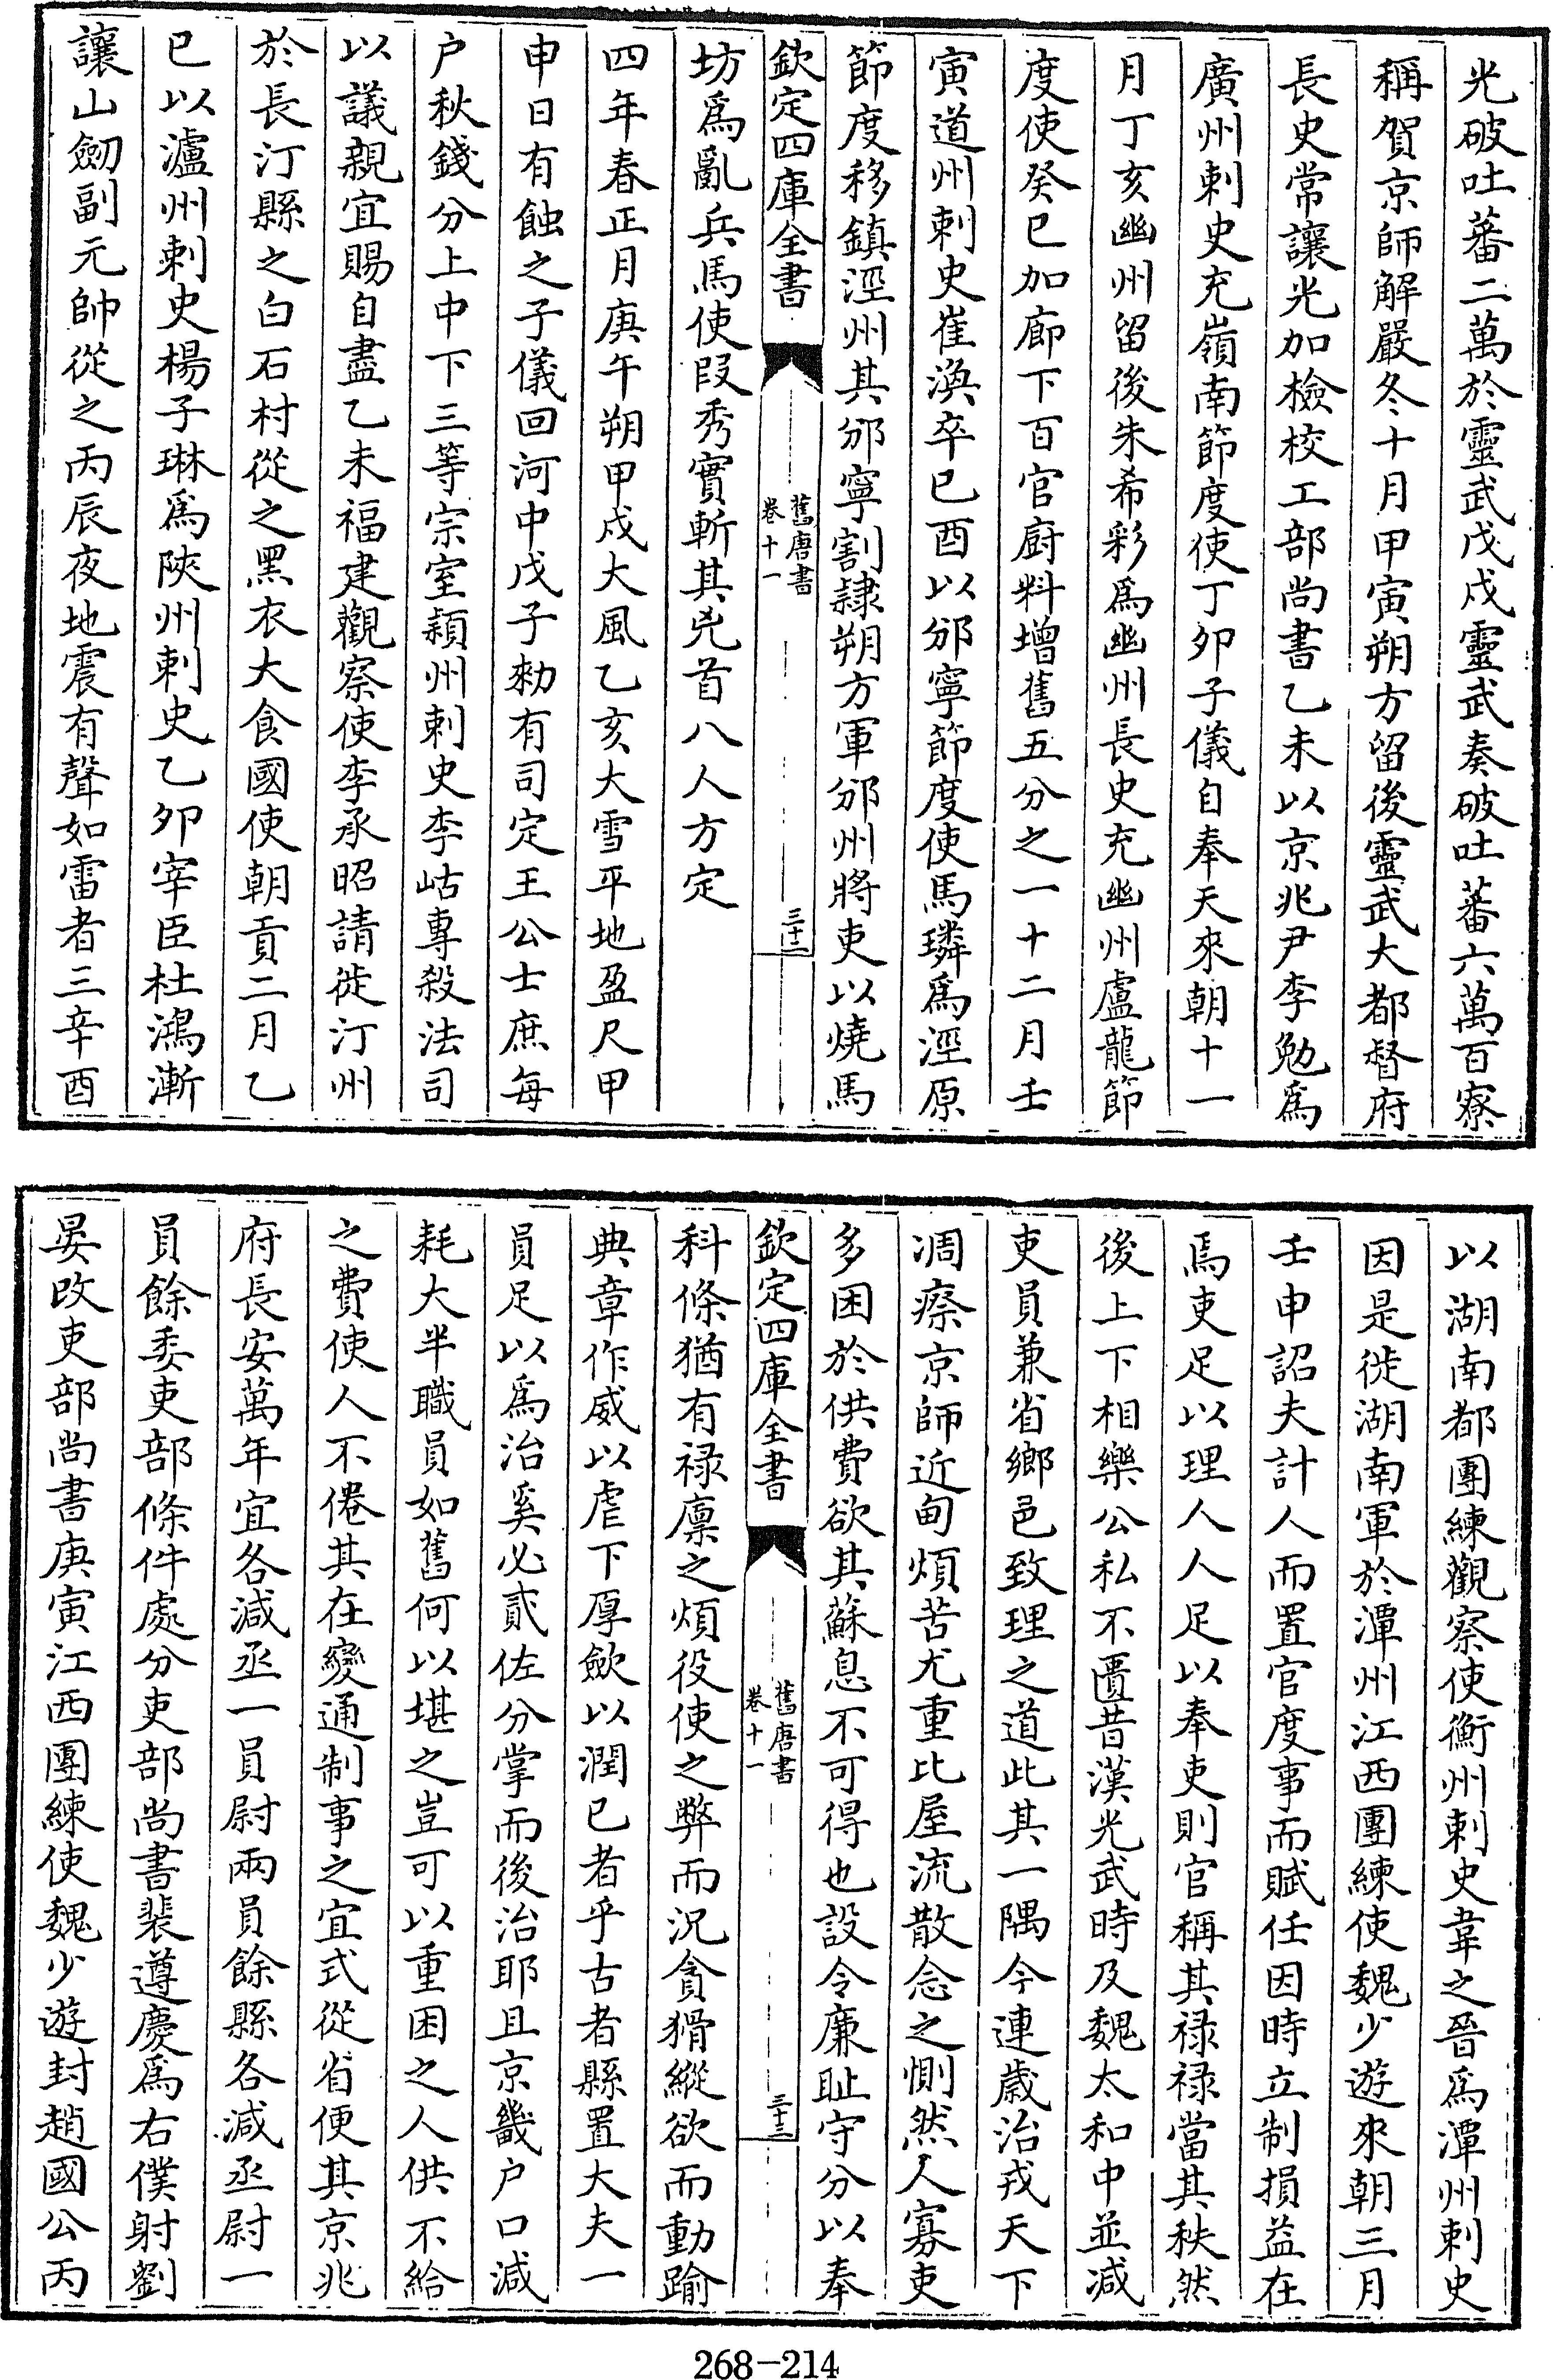 光破吐蕃二萬於靈武戊戌靈武奏破吐蕃六萬百寮
稱賀京師解嚴冬十月甲寅朔方留後靈武大都督府
長史常讓光加檢校工部尚書乙未以京兆尹李勉為
廣州刺史充嶺南節度使丁卯子儀自奉天來朝十一
月丁亥幽州留後朱希彩為幽州長史充幽州盧龍節
度使癸巳加廊下百官廚料增舊五分之一十二月壬
寅道州刺史崔渙卒已酉以邠寧節度使馬璘為涇原
節度移鎮涇州其邠寧割隷朔方軍邠州將吏以燒馬
欽定四庫全書
舊唐書
卷十一
三十二
坊為亂兵馬使段秀實斬其兇首八人方定
四年春正月庚午朔甲戌大風乙亥大雪平地盈尺甲
申日有蝕之子儀回河中戊子勑有司定王公士庶每
户秋錢分上中下三等宗室潁州刺史李岵專殺法司
以議親宜賜自盡乙未福建觀察使李承昭請徙汀州
於長汀縣之白石村從之黑衣大食國使朝貢二月乙
巳以瀘州刺史楊子琳為陜州刺史乙夘宰臣杜鴻漸
讓山劒副元帥從之丙辰夜地震有聲如雷者三辛酉
以湖南都團練觀察使衡州刺史韋之晉為潭州刺史
因是徙湖南軍於潭州江西團練使魏少遊來朝三月
壬申詔夫計人而置官度事而賦任因時立制損益在
焉吏足以理人人足以奉吏則官稱其禄禄當其秩然
後上下相樂公私不匱昔漢光武時及魏太和中並減
吏員兼省鄉邑致理之道此其一隅今連歲治戎天下
凋瘵京師近甸煩苦尤重比屋流散念之惻然人寡吏
多困於供費欲其蘇息不可得也設令廉耻守分以奉
欽定四庫全書
舊唐書
卷十一
三十三
科條猶有禄廪之煩役使之弊而況貪猾縱欲而動踰
典章作威以虐下厚歛以潤已者乎古者縣置大夫一
員足以為治奚必貳佐分掌而後治耶且京畿户口減
耗大半職員如舊何以堪之豈可以重困之人供不給
之費使人不倦其在變通制事之宜式從省便其京兆
府長安萬年宜各減丞一員尉兩員餘縣各減丞尉一
員餘委吏部條件處分吏部尚書裴遵慶為右僕射劉
晏改吏部尚書庚寅江西團練使魏少遊封趙國公丙
268-214